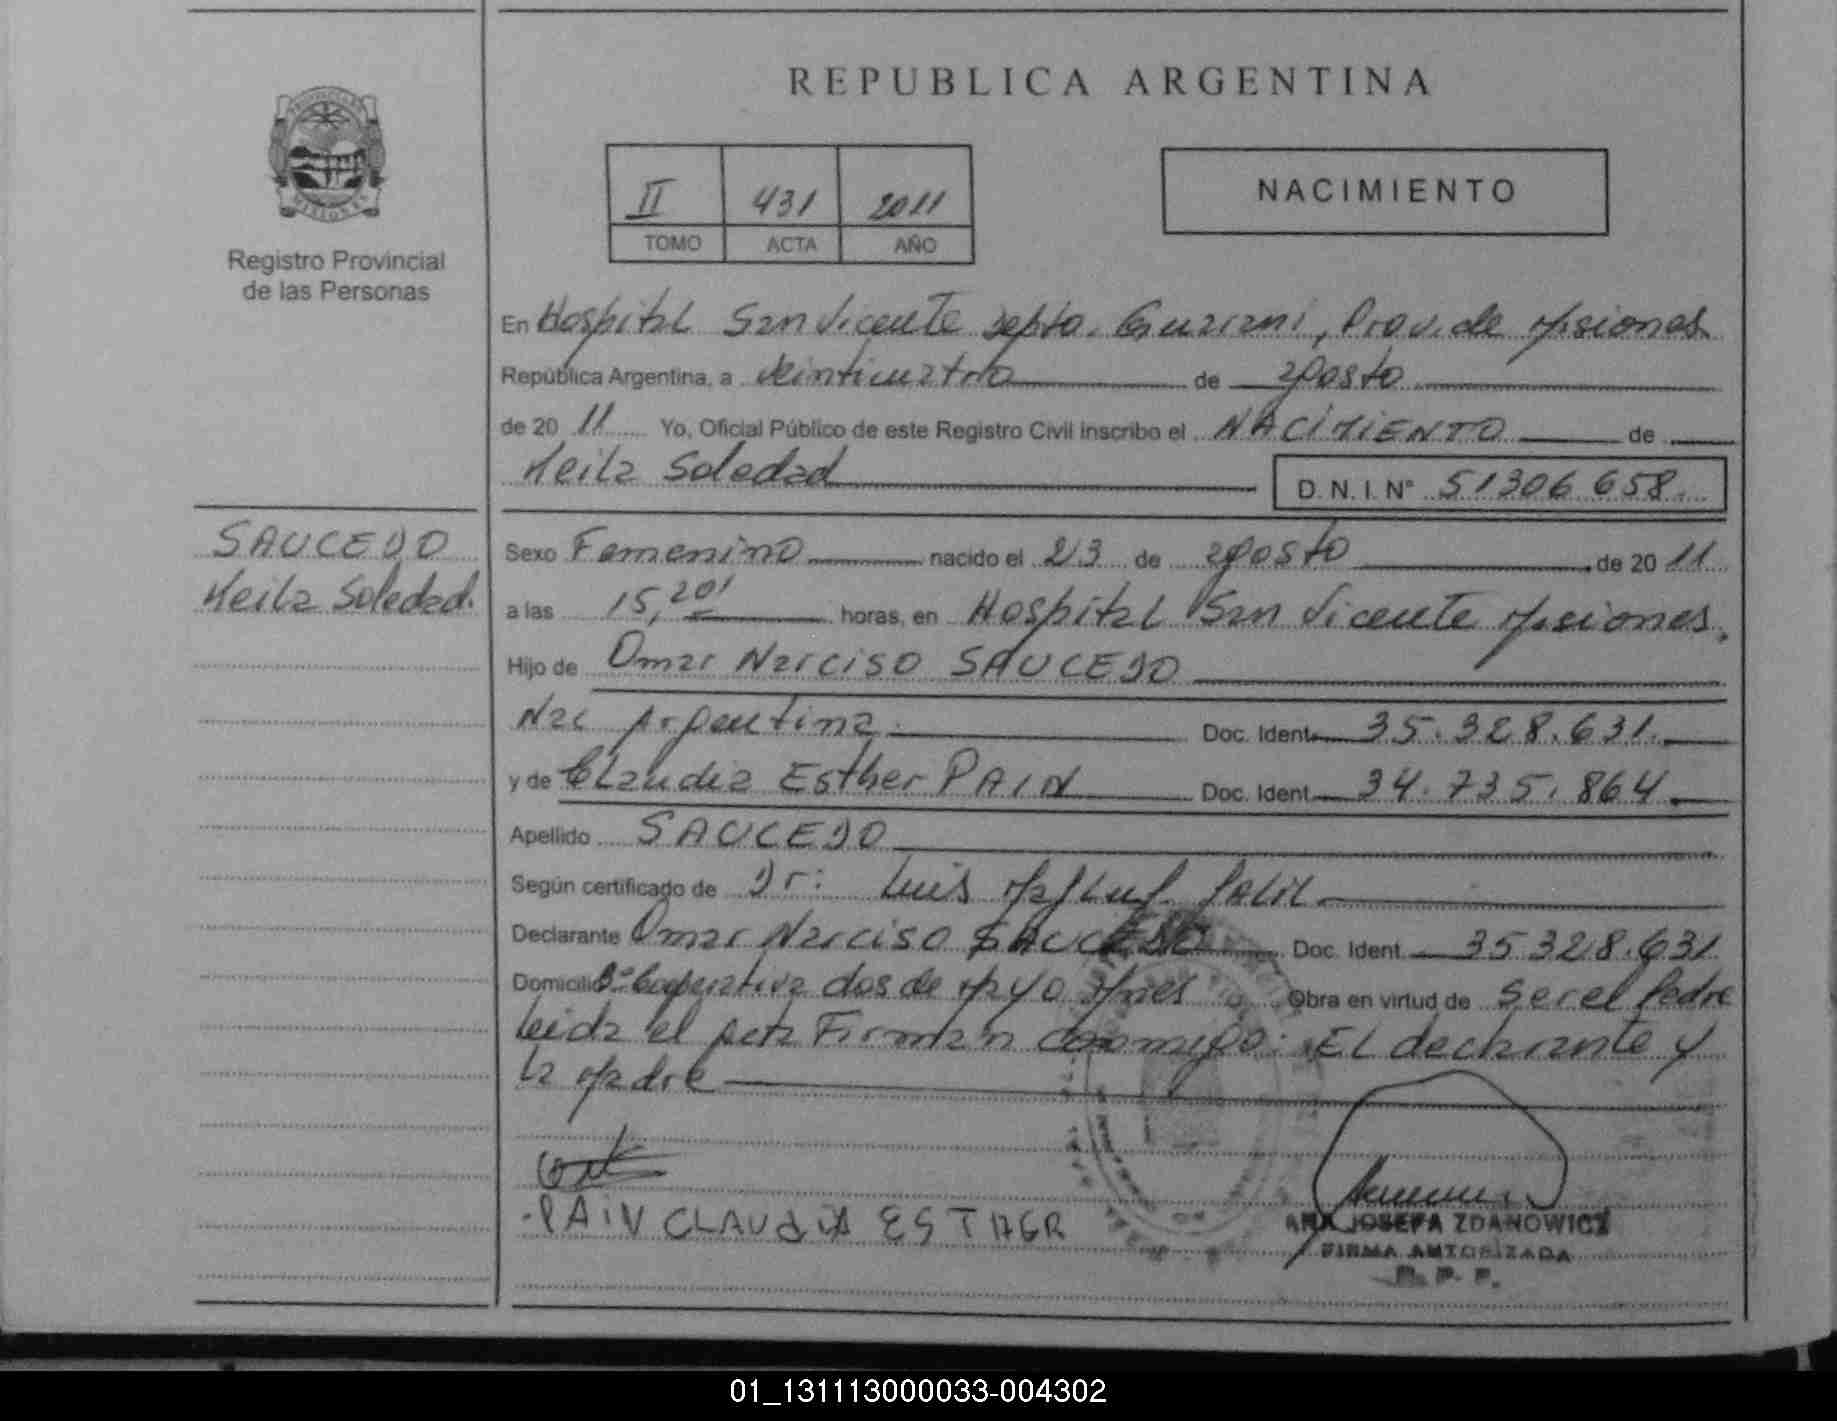 REPUBLICA ARGENTINA
PROVINCIA DE
MISIONES
Registro Provincial
de las Personas
II 431 2011
TOMO ACTA AÑO
NACIMIENTO
En Hospital San Vicente Depto. Guarani, Prov. de Misiones
República Argentina, a Veinticuatro de agosto
de 20 11 Yo, Oficial Público de este Registro Civil inscribo el NACIMIENTO de
Keila Soledad D. N. I. N° 51306 658.
SAUCEDO
Keila Soledad.
Sexo Femenino nacido el 23 de agosto de 20 11
a las 15,20' horas, en Hospital San Vicente Misiones.
Hijo de Omar Narciso SAUCEDO
Nac Argentina. Doc. Ident. 35.328.631.
y de Claudia Esther PAIN Doc. Ident. 34.735.864
Apellido SAUCEDO
Según certificado de Dr: Luis
Declarante Omar Narciso SAUCEDO Doc. Ident. 35328.631
Domicilio Bº Cooperativa dos de Mayo Mnes Obra en virtud de Ser el Padre
Leida el acta Firman conmigo: El declarante y
la Madre
PAIN CLAUDIA ESTHER
ANA JOSEFA ZDANOWICZ
FIRMA AUTORIZADA
R. P. P.
01_131113000033-004302